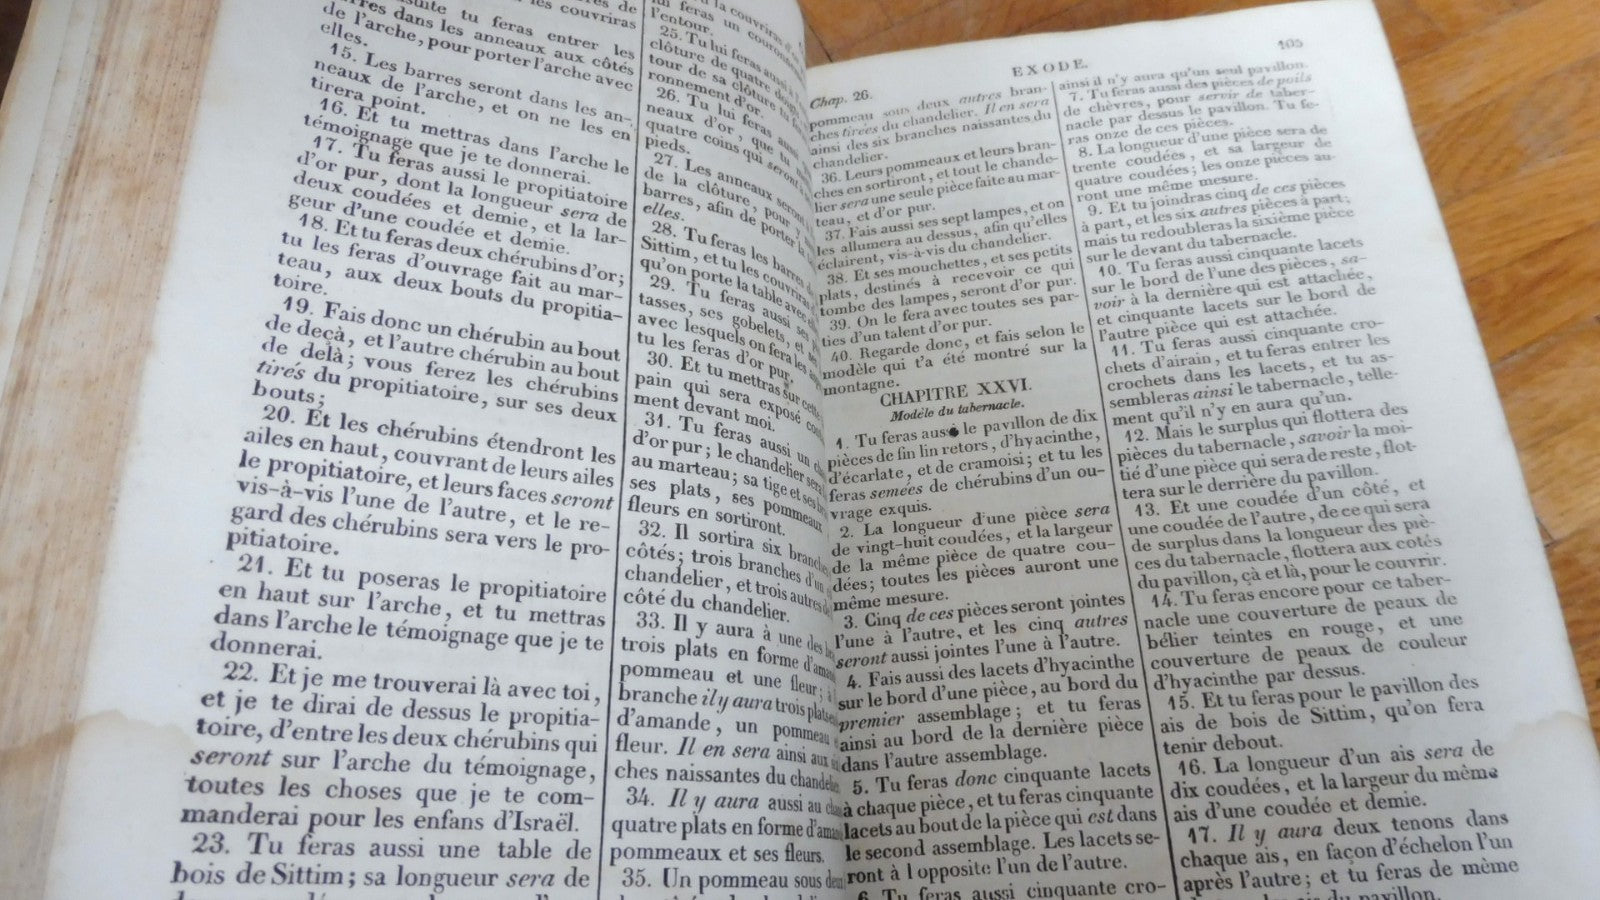 tu feras entrer les
barres dans les anneaux aux côtés
de l'arche, pour porter l'arche avec
elles.
15. Les barres seront dans les an-
neaux de l'arche, et on ne les en
tirera point.
16. Et tu mettras dans l'arche le
témoignage que je te donnerai.
17. Tu feras aussi le propitiatoire
d'or pur, dont la longueur sera de
deux coudées et demie, et la lar-
geur d'une coudée et demie.
18. Et tu feras deux chérubins d'or;
tu les feras d'ouvrage fait au mar-
teau, aux deux bouts du propitia-
toire.
19. Fais donc un chérubin au bout
de deçà, et l'autre chérubin au bout
de delà; vous ferez les chérubins
tirés du propitiatoire, sur ses deux
bouts;
20. Et les chérubins étendront les
ailes en haut, couvrant de leurs ailes
le propitiatoire, et leurs faces seront
vis-à-vis l'une de l'autre, et le re-
gard des chérubins sera vers le pro-
pitiatoire.
21. Et tu poseras le propitiatoire
en haut sur l'arche, et tu mettras
dans l'arche le témoignage que je te
donnerai.
22. Et je me trouverai là avec toi,
et je te dirai de dessus le propitia-
toire, d'entre les deux chérubins qui
seront sur l'arche du témoignage,
toutes les choses que je te com-
manderai pour les enfans d'Israël.
23. Tu feras aussi une table de
bois de Sittim; sa longueur sera de
la couvriras
feras un
l'entour.
25. Tu lui feras aussi
clôture de quatre
tour de sa clôture
ronnement d'or.
26. Tu lui feras aussi
neaux d'or, que tu
quatre coins qui seront
pieds.
27. Les anneaux seront
de la clôture, pour y
barres, afin de porter
elles.
28. Tu feras les barres
Sittim, et tu les couvriras
qu'on porte la table avec
29. Tu feras aussi ses
tasses, ses gobelets, et
avec lesquels on fera les
tu les feras d'or pur.
30. Et tu mettras sur cette
pain qui sera exposé
ment devant moi.
31. Tu feras aussi un
d'or pur; le chandelier sera
au marteau; sa tige et ses
ses plats, ses pommeaux
fleurs en sortiront.
32. Il sortira six branches
côtés; trois branches d'un
chandelier, et trois autres
côté du chandelier.
33. Il y aura à une des
trois plats en forme d'amande
pommeau et une fleur;
branche il y aura trois plats
d'amande, un pommeau
fleur. Il en sera ainsi aux
ches naissantes du chandelier
34. Il y aura aussi au
quatre plats en forme
pommeaux et ses fleurs.
35. Un pommeau sous
EXODE.
105
Chap. 26.
pommeau sous deux autres bran-
ches tirées du chandelier. Il en sera
ainsi des six branches naissantes du
chandelier.
36. Leurs pommeaux et leurs bran-
ches en sortiront, et tout le chande-
lier sera une seule pièce faite au mar-
teau, et d'or pur.
37. Fais aussi ses sept lampes, et on
les allumera au dessus, afin qu'elles
éclairent, vis-à-vis du chandelier.
38. Et ses mouchettes, et ses petits
plats, destinés à recevoir ce qui
tombe des lampes, seront d'or pur.
39. On le fera avec toutes ses par-
ties d'un talent d'or pur.
40. Regarde donc, et fais selon le
modèle qui t'a été montré sur la
montagne.
CHAPITRE XXVI.
Modèle du tabernacle.
1. Tu feras aussi le pavillon de dix
pièces de fin lin retors, d'hyacinthe,
d'écarlate, et de cramoisi; et tu les
feras semées de chérubins d'un ou-
vrage exquis.
2. La longueur d'une pièce sera
de vingt-huit coudées, et la largeur
de la même pièce de quatre cou-
dées; toutes les pièces auront une
même mesure.
3. Cinq de ces pièces seront jointes
l'une à l'autre, et les cinq autres
seront aussi jointes l'une à l'autre.
4. Fais aussi des lacets d'hyacinthe
sur le bord d'une pièce, au bord du
premier assemblage; et tu feras
ainsi au bord de la dernière pièce
dans l'autre assemblage.
5. Tu feras donc cinquante lacets
à chaque pièce, et tu feras cinquante
lacets au bout de la pièce qui est dans
le second assemblage. Les lacets se-
ront à l'opposite l'un de l'autre.
6. Tu feras aussi cinquante cro-
ainsi il n'y aura qu'un seul pavillon.
7. Tu feras aussi des pièces de poils
de chèvres, pour servir de taber-
nacle par dessus le pavillon. Tu fe-
ras onze de ces pièces.
8. La longueur d'une pièce sera de
trente coudées, et sa largeur de
quatre coudées; les onze pièces au-
ront une même mesure.
9. Et tu joindras cinq de ces pièces
à part, et les six autres pièces à part;
mais tu redoubleras la sixième pièce
sur le devant du tabernacle.
10. Tu feras aussi cinquante lacets
sur le bord de l'une des pièces, sa-
voir à la dernière qui est attachée,
et cinquante lacets sur le bord de
l'autre pièce qui est attachée.
11. Tu feras aussi cinquante cro-
chets d'airain, et tu feras entrer les
crochets dans les lacets, et tu as-
sembleras ainsi le tabernacle, telle-
ment qu'il n'y en aura qu'un.
12. Mais le surplus qui flottera des
pièces du tabernacle, savoir la moi-
tié d'une pièce qui sera de reste, flot-
tera sur le derrière du pavillon.
13. Et une coudée d'un côté, et
une coudée de l'autre, de ce qui sera
de surplus dans la longueur des piè-
ces du tabernacle, flottera aux cotés
du pavillon, çà et là, pour le couvrir.
14. Tu feras encore pour ce taber-
nacle une couverture de peaux de
bélier teintes en rouge, et une
couverture de peaux de couleur
d'hyacinthe par dessus.
15. Et tu feras pour le pavillon des
ais de bois de Sittim, qu'on fera
tenir debout.
16. La longueur d'un ais sera de
dix coudées, et la largeur du même
ais d'une coudée et demie.
17. Il y aura deux tenons dans
chaque ais, en façon d'échelon l'un
après l'autre; et tu feras de même
ais du pavillon.